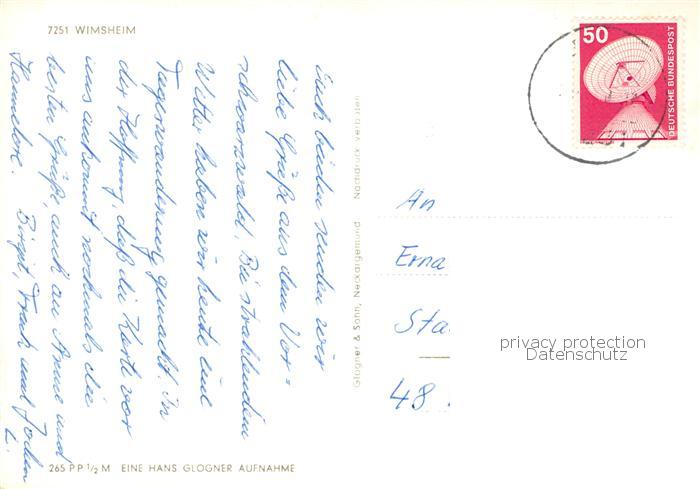 7251 WIMSHEIM
Euch beiden senden wir
liebe Grüße aus dem Vor=
schwarzwald. Bei strahlendem
Wetter haben wir heute eine
Tageswanderung gemacht. In
der Hoffnung, daß die Karte vor
uns ankommt nochmals die
besten Grüße, auch an Anne und
Hannelore. Birgit, Frank und Jochen
265 P P 1/2 M EINE HANS GLOGNER AUFNAHME
Glogner & Sohn, Neckargemünd Nachdruck verboten
50
DEUTSCHE BUNDESPOST
An
Erna
Sta
48
privacy protection
Datenschutz